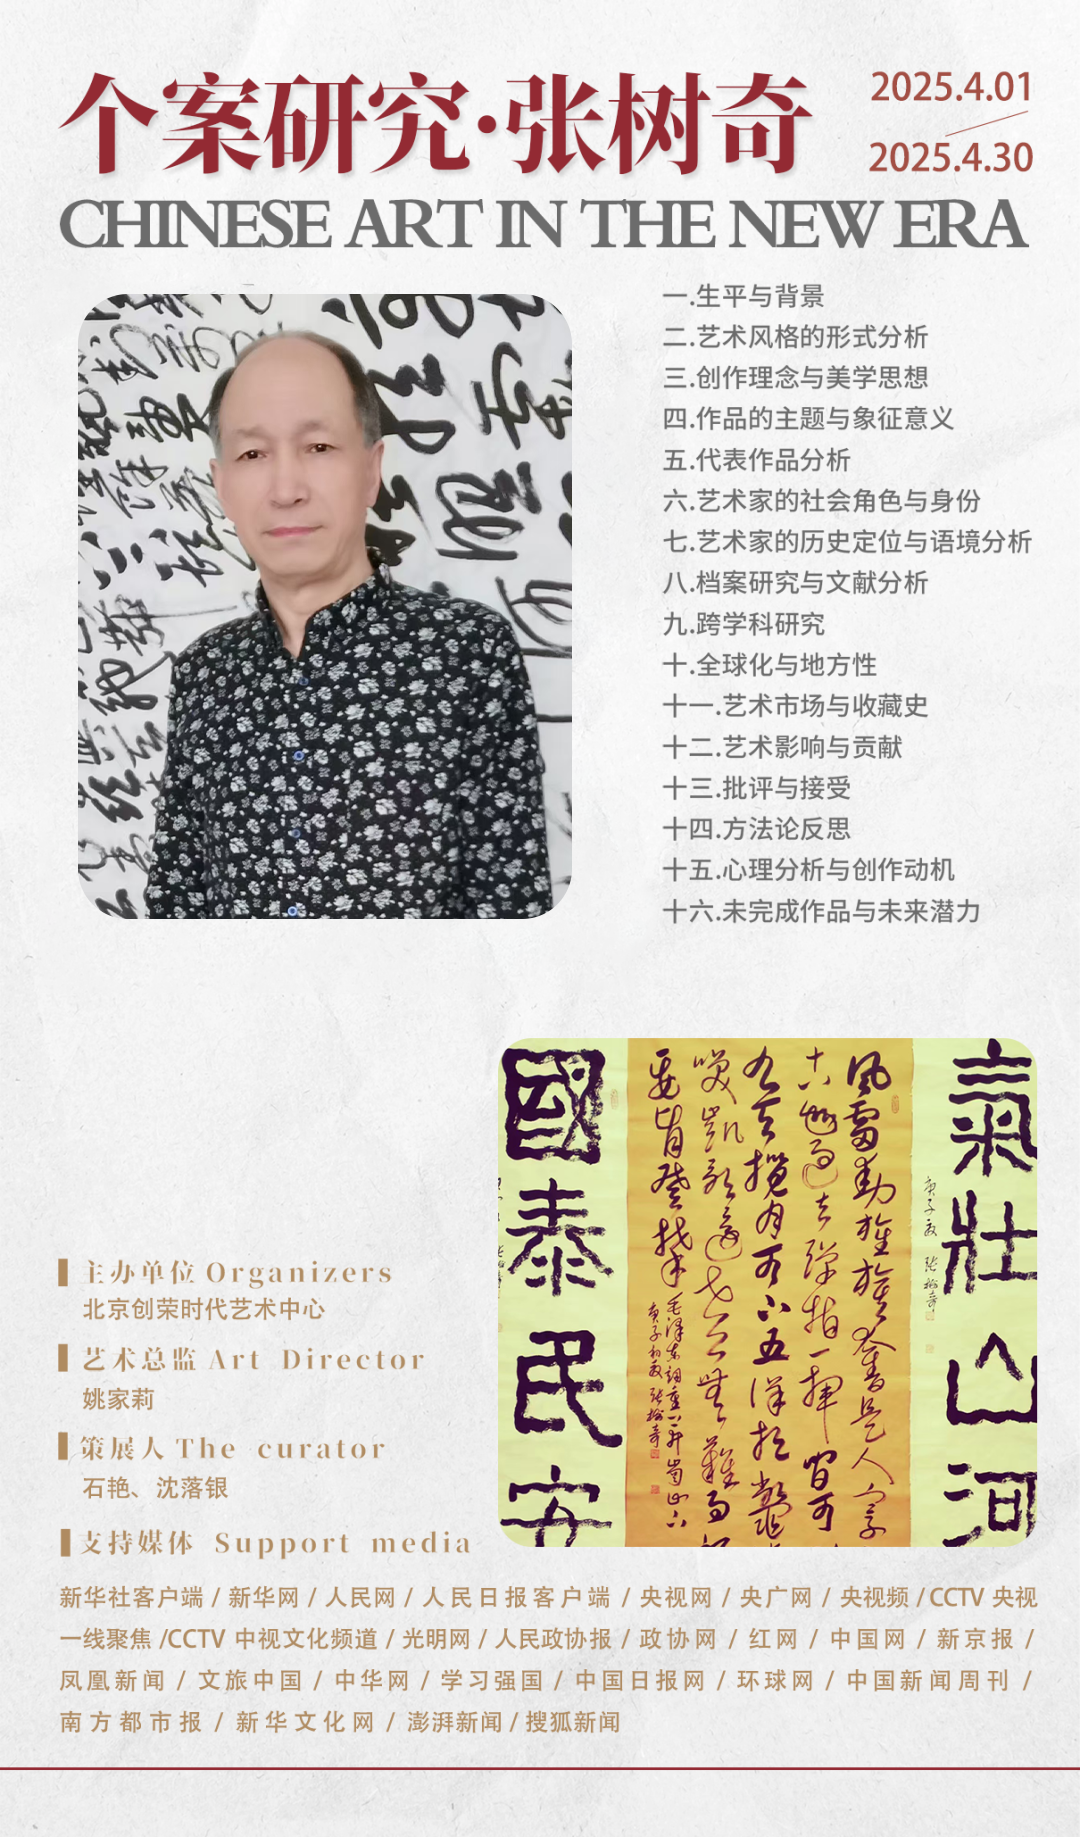 个案研究·张树奇
2025.4.01
2025.4.30
CHINESE ART IN THE NEW ERA
一.生平与背景
二.艺术风格的形式分析
三.创作理念与美学思想
四.作品的主题与象征意义
五.代表作品分析
六.艺术家的社会角色与身份
七.艺术家的历史定位与语境分析
八.档案研究与文献分析
九.跨学科研究
十.全球化与地方性
十一.艺术市场与收藏史
十二.艺术影响与贡献
十三.批评与接受
十四.方法论反思
十五.心理分析与创作动机
十六.未完成作品与未来潜力
氣壯山河
庚子夏 張樹奇
風雷動旌旗奮是人寰
十八年過去彈指一揮間可
九天攬月可下五洋捉鱉
談笑凱歌還世上無難事
要肯登攀
毛澤東詞重上井崗山
庚子初夏張樹奇
國泰民安
主办单位 Organizers
北京创荣时代艺术中心
艺术总监 Art Director
姚家莉
策展人 The curator
石艳、沈落银
支持媒体 Support media
新华社客户端 / 新华网 / 人民网 / 人民日报客户端 / 央视网 / 央广网 / 央视频 / CCTV 央视
一线聚焦 /CCTV 中视文化频道 / 光明网 / 人民政协报 / 政协网 / 红网 / 中国网 / 新京报 /
凤凰新闻 / 文旅中国 / 中华网 / 学习强国 / 中国日报网 / 环球网 / 中国新闻周刊 /
南方都市报 / 新华文化网 / 澎湃新闻 / 搜狐新闻